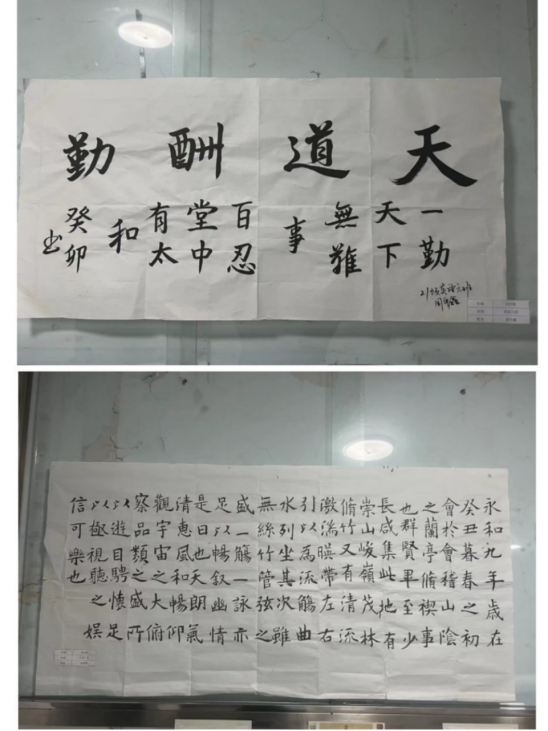 天道酬勤
一勤
天下
無難
事
百忍
堂中
有太
和
癸卯
书
永和九年歲在
癸丑暮春之初
會於會稽山陰
之蘭亭脩禊事
也群賢畢至少
長咸集此地有
崇山峻嶺茂林
脩竹又有清流
激湍暎帶左右
引以為流觴曲
水列坐其次雖
無絲竹管弦之
盛一觴一詠亦
足以暢叙幽情
是日也天朗氣
清惠風和暢仰
觀宇宙之大俯
察品類之盛所
以遊目騁懷足
以極視聽之娱
信可樂也